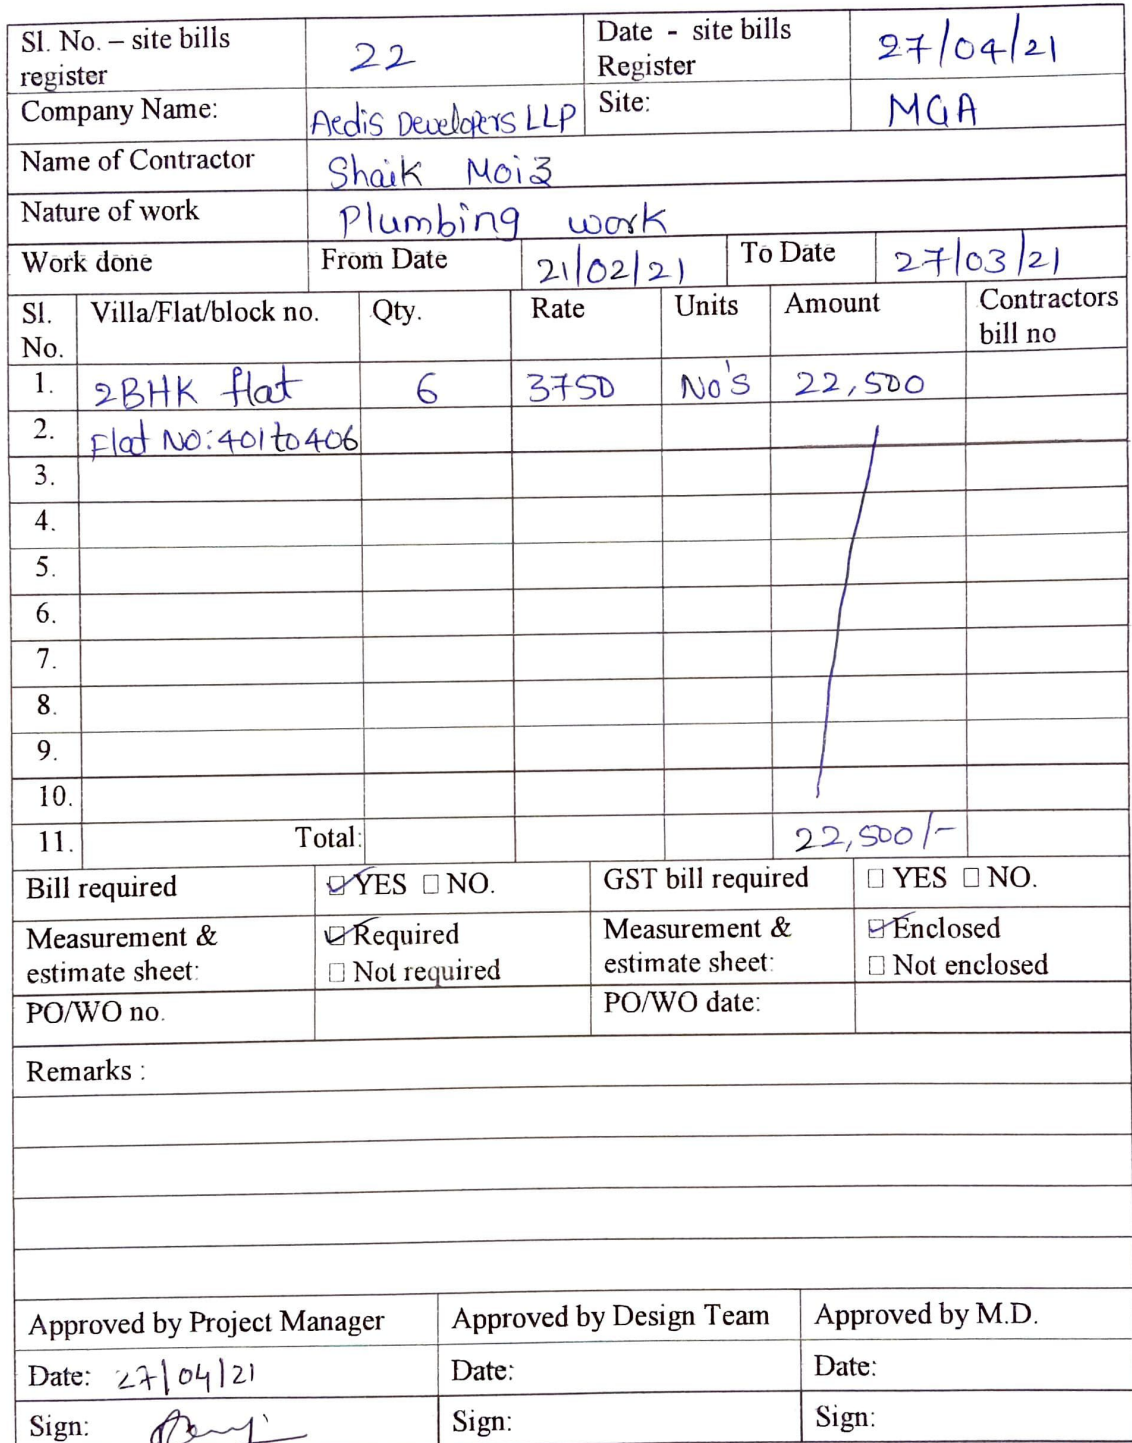 Sl. No. – site bills register 22 Date - site bills Register 27/04/21
Company Name: Aedis Developers LLP Site: MGA
Name of Contractor Shaik Moiz
Nature of work Plumbing work
Work done From Date 21/02/21 To Date 27/03/21
Sl. No. Villa/Flat/block no. Qty. Rate Units Amount Contractors bill no
1. 2BHK flat 6 3750 No's 22,500
2. Flat NO:401to406
3.
4.
5.
6.
7.
8.
9.
10.
11. Total: 22,500/-
Bill required YES NO. GST bill required YES NO.
Measurement & estimate sheet: Required Not required Measurement & estimate sheet: Enclosed Not enclosed
PO/WO no. PO/WO date:
Remarks :
Approved by Project Manager Approved by Design Team Approved by M.D.
Date: 27/04/21 Date: Date:
Sign: Sign: Sign: